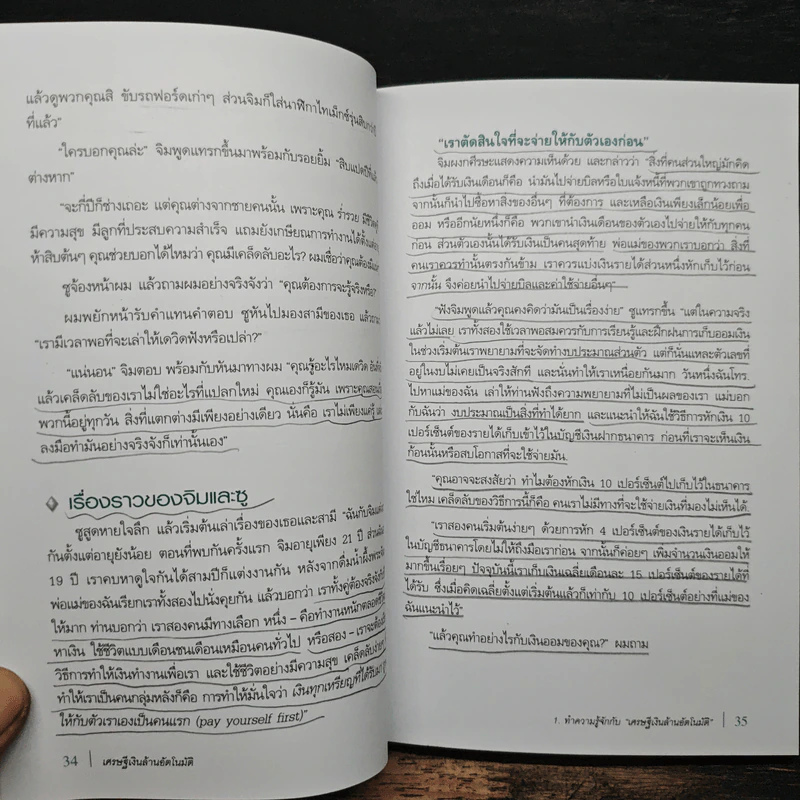 แล้วดูพวกคุณสิ ขับรถฟอร์ดเก่าๆ ส่วนจิมก็ใส่นาฬิกาไทเม็กซ์รุ่นสิบกว่าปี
ที่แล้ว”
“ใครบอกคุณล่ะ” จิมพูดแทรกขึ้นมาพร้อมกับรอยยิ้ม “สิบแปดปีที่แล้ว
ต่างหาก”
“จะกี่ปีก็ช่างเถอะ แต่คุณต่างจากชายคนนั้น เพราะคุณ ร่ำรวย มีชีวิต
มีความสุข มีลูกที่ประสบความสำเร็จ แถมยังเกษียณการทำงานได้ตั้งแต่
ห้าสิบต้นๆ คุณช่วยบอกได้ไหมว่า คุณมีเคล็ดลับอะไร? ผมเชื่อว่าคุณต้องมี
ซูจ้องหน้าผม แล้วถามผมอย่างจริงจังว่า “คุณต้องการจะรู้จริงหรือ?”
ผมพยักหน้ารับคำแทนคำตอบ ซูหันไปมองสามีของเธอ แล้วถาม
“เรามีเวลาพอที่จะเล่าให้เดวิดฟังหรือเปล่า?”
“แน่นอน” จิมตอบ พร้อมกับหันมาทางผม “คุณรู้อะไรไหมเดวิด
แล้วเคล็ดลับของเราไม่ใช่อะไรที่แปลกใหม่ คุณเองก็รู้มัน เพราะคุณสอน
พวกนี้อยู่ทุกวัน สิ่งที่แตกต่างมีเพียงอย่างเดียว นั่นคือ เราไม่เพียงแค่รู้
ลงมือทำมันอย่างจริงจังก็เท่านั้นเอง”
เรื่องราวของจิมและซู
ซูสูดหายใจลึก แล้วเริ่มต้นเล่าเรื่องของเธอและสามี “ฉันกับจิม
กันตั้งแต่อายุยังน้อย ตอนที่พบกันครั้งแรก จิมอายุเพียง 21 ปี ส่วนฉัน
19 ปี เราคบหาดูใจกันได้สามปีก็แต่งงานกัน หลังจากดื่มน้ำผึ้งพระจันทร์
พ่อแม่ของฉันเรียกเราทั้งสองไปนั่งคุยกัน แล้วบอกว่า เราทั้งคู่ต้องจริงจัง
ให้มาก ท่านบอกว่า เราสองคนมีทางเลือก หนึ่ง – คือทำงานหนักตลอดชีวิต
หาเงิน ใช้ชีวิตแบบเดือนชนเดือนเหมือนคนทั่วไป หรือสอง – เราจะต้อง
วิธีการทำให้เงินทำงานเพื่อเรา และใช้ชีวิตอย่างมีความสุข เคล็ดลับง่ายๆ
ทำให้เราเป็นคนกลุ่มหลังก็คือ การทำให้มั่นใจว่า เงินทุกเหรียญที่ได้รับมา
ให้กับตัวเราเองเป็นคนแรก (pay yourself first)”
34 | เศรษฐีเงินล้านอัตโนมัติ
“เราตัดสินใจที่จะจ่ายให้กับตัวเองก่อน”
จิมผงกศีรษะแสดงความเห็นด้วย และกล่าวว่า “สิ่งที่คนส่วนใหญ่มักคิด
ถึงเมื่อได้รับเงินเดือนก็คือ นำมันไปจ่ายบิลหรือใบแจ้งหนี้ที่พวกเขาถูกทวงถาม
จากนั้นก็นำไปซื้อหาสิ่งของอื่นๆ ที่ต้องการ และเหลือเงินเพียงเล็กน้อยเพื่อ
ออม หรืออีกนัยหนึ่งก็คือ พวกเขานำเงินเดือนของตัวเองไปจ่ายให้กับทุกคน
ก่อน ส่วนตัวเองนั้นได้รับเงินเป็นคนสุดท้าย พ่อแม่ของพวกเราบอกว่า สิ่งที่
คนเราควรทำนั้นตรงกันข้าม เราควรแบ่งเงินรายได้ส่วนหนึ่งหักเก็บไว้ก่อน
จากนั้น จึงค่อยนำไปจ่ายบิลและค่าใช้จ่ายอื่นๆ”
“ฟังจิมพูดแล้วคุณคงคิดว่ามันเป็นเรื่องง่าย” ซูแทรกขึ้น “แต่ในความจริง
แล้วไม่เลย เราทั้งสองใช้เวลาพอสมควรกับการเรียนรู้และฝึกฝนการเก็บออมเงิน
ในช่วงเริ่มต้นเราพยายามที่จะจัดทำงบประมาณส่วนตัว แต่ก็นั่นแหละตัวเลขที่
อยู่ในงบไม่เคยเป็นจริงสักที และนั่นทำให้เราเหนื่อยกันมาก วันหนึ่งฉันโทร.
ไปหาแม่ของฉัน เล่าให้ท่านฟังถึงความพยายามที่ไม่เป็นผลของเรา แม่บอก
กับฉันว่า งบประมาณเป็นสิ่งที่ทำได้ยาก และแนะนำให้ฉันใช้วิธีการหักเงิน 10
เปอร์เซ็นต์ของรายได้เก็บเข้าไว้ในบัญชีเงินฝากธนาคาร ก่อนที่เราจะเห็นเงิน
ก้อนนั้นหรือสบโอกาสที่จะใช้จ่ายมัน.
“คุณอาจจะสงสัยว่า ทำไมต้องหักเงิน 10 เปอร์เซ็นต์ไปเก็บไว้ในธนาคาร
ใช่ไหม เคล็ดลับของวิธีการนี้ก็คือ คนเราไม่มีทางที่จะใช้จ่ายเงินที่มองไม่เห็นได้.
“เราสองคนเริ่มต้นง่ายๆ ด้วยการหัก 4 เปอร์เซ็นต์ของเงินรายได้เก็บไว้
ในบัญชีธนาคารโดยไม่ให้ถึงมือเราก่อน จากนั้นก็ค่อยๆ เพิ่มจำนวนเงินออมให้
มากขึ้นเรื่อยๆ ปัจจุบันนี้เราเก็บเงินเฉลี่ยเดือนละ 15 เปอร์เซ็นต์ของรายได้ที่
ได้รับ ซึ่งเมื่อคิดเฉลี่ยตั้งแต่เริ่มต้นแล้วก็เท่ากับ 10 เปอร์เซ็นต์อย่างที่แม่ของ
ฉันแนะนำไว้”
“แล้วคุณทำอย่างไรกับเงินออมของคุณ?” ผมถาม
1. ทำความรู้จักกับ “เศรษฐีเงินล้านอัตโนมัติ” | 35